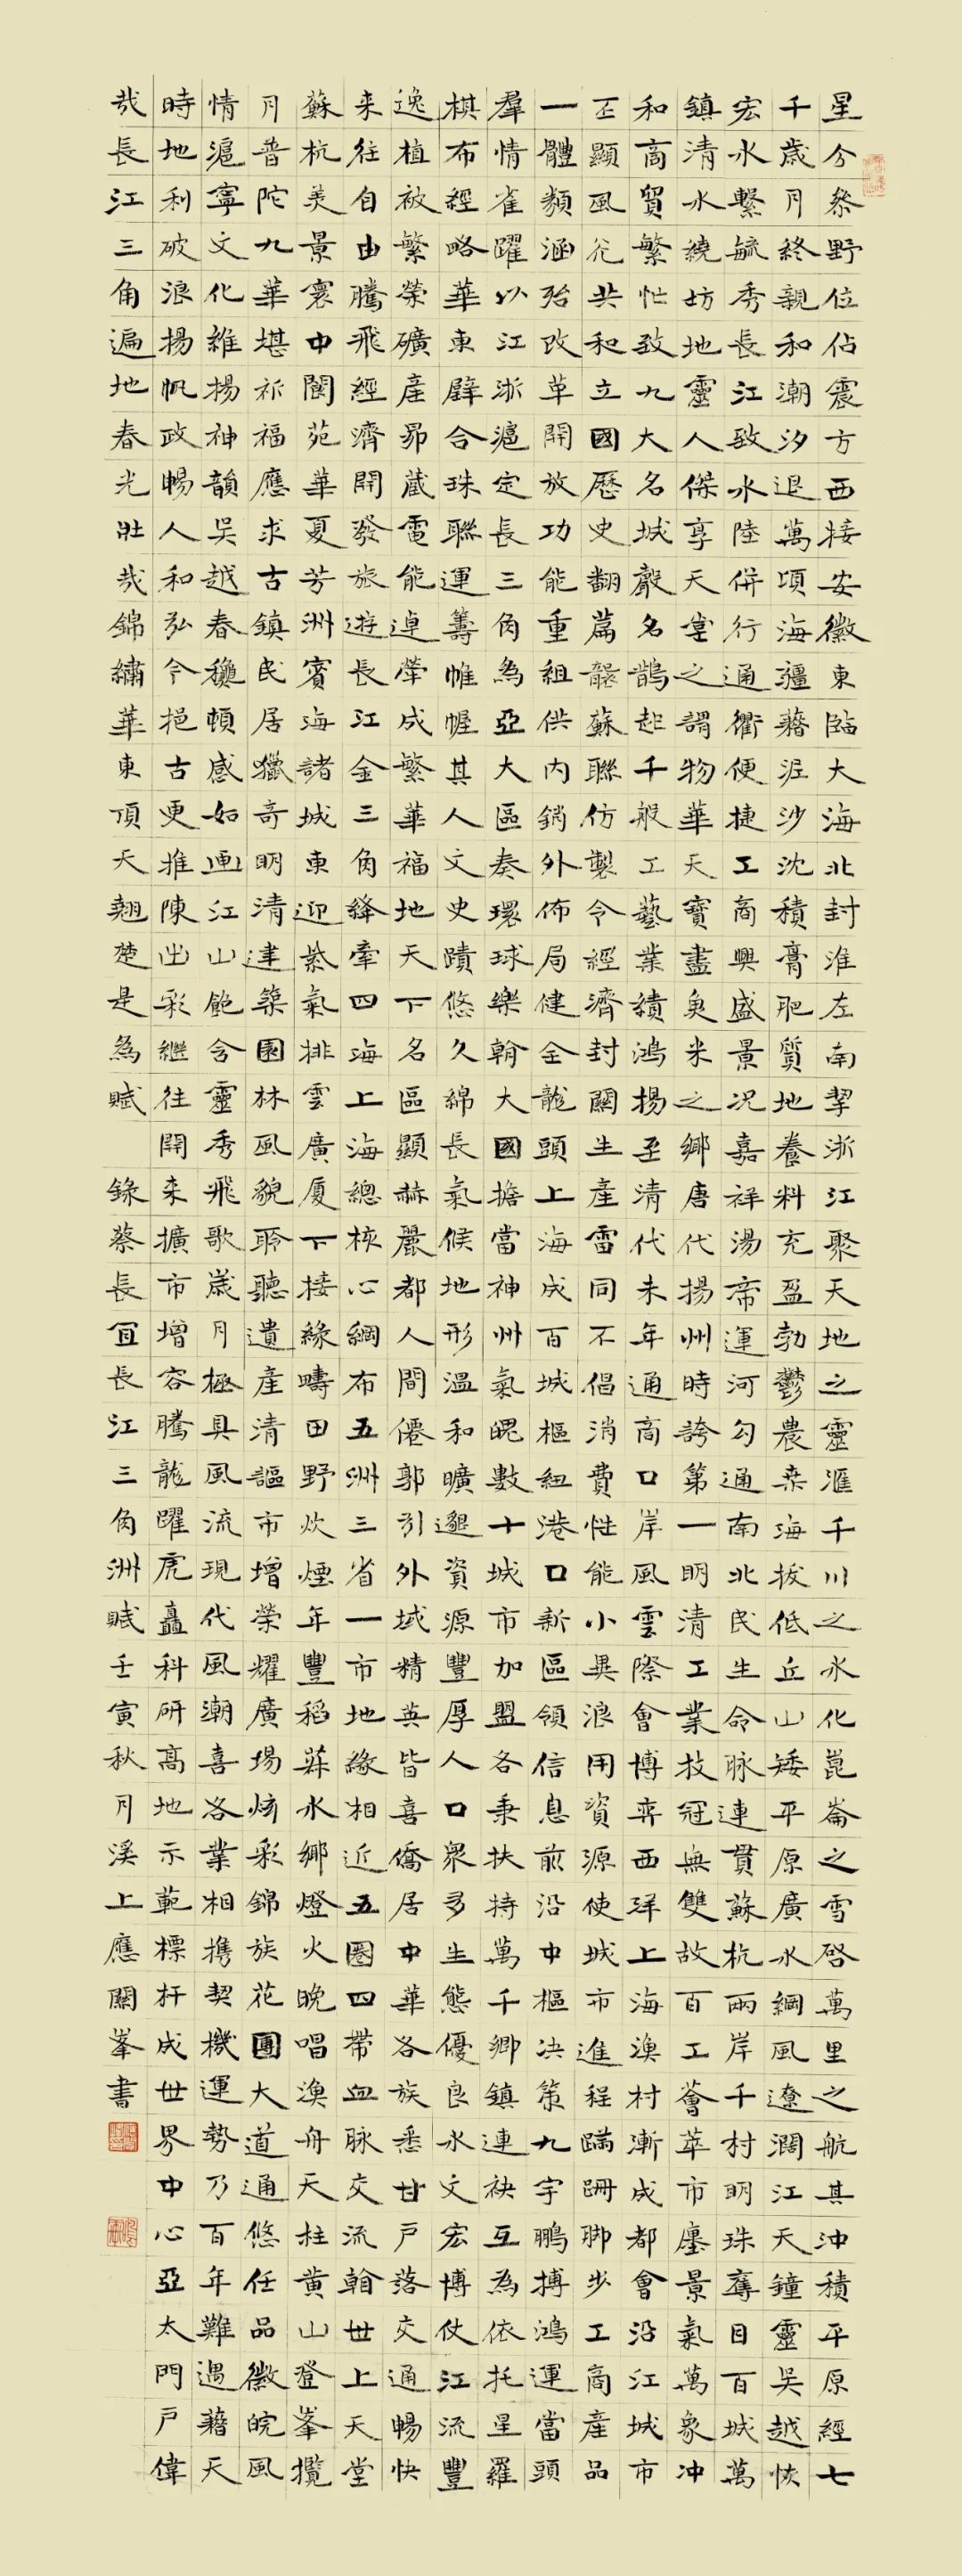 星分婺野位佔震方西接安徽東臨大海北封淮左南挈浙江聚天地之靈滙千川之水化崑崙之雪啓萬里之航其沖積平原經七
千歲月終親和潮汐退萬頃海疆藉泥沙沈積膏肥質地養料充盈勃鬱農桑海拔低丘山矮平原廣水網風遼濶江天鐘靈吳越恢
宏水繫毓秀長江致水陸併行通衢便捷工商興盛景况嘉祥湯帝運河勾通南北民生命脉連貫蘇杭兩岸千村明珠奪目百城萬
鎮清水繞坊地靈人傑享天堂之謂物華天寶盡魚米之鄉唐代揚州時誇第一明清工業技冠無雙故百工薈萃市廛景氣萬象冲
和商貿繁忙致九大名城聲名鵲起千般工藝業績鴻揚至清代未年通商口岸風雲際會博弈西洋上海漁村漸成都會沿江城市
丕顯風光共和立國歷史翻篇髭蘇聯仿製令經濟封關生產雷同不倡消費性能小異浪用資源使城市進程蹣跚脚步工商產品
一體類涵殆改革開放功能重組供内銷外佈局健全龍頭上海成百城樞紐港口新區領信息前沿中樞决策九宇鵬搏鴻運當頭
羣情雀躍以江浙滬定長三角為亞大區奏環球樂翰大國擔當神州氣魄數十城市加盟各秉扶持萬千鄉鎮連袂互為依托星羅
棋布經略華東壁合珠聯運籌帷幄其人文史蹟悠久綿長氣候地形溫和曠邈資源豐厚人口衆多生態優良水文宏博仗江流豐
逸植被繁榮礦產昴蔵電能卓犖成繁華福地天下名區顯赫麗都人間僊郭引外域精英皆喜僑居中華各族悉甘戶落交通暢快
来往自由騰飛經濟開發旅遊長江金三角絳牽四海上海總核心網布五洲三省一市地緣相近五圈四帶血脉交流翰世上天堂
蘇杭美景寰中閬苑華夏芳洲賓海諸城東迎紫氣排雲廣厦下接緣疇田野炊煙年豐稻蔴水鄉燈火晚唱漁舟天柱黃山登峯攬
月普陀九華堪祈福應求古鎮民居獵奇明清建築園林風貌聆聽遺產清謳市增榮耀廣場炫彩錦族花團大道通悠任品徽皖風
情滬寧文化維揚神韻吳越春穠頓感如画江山飽含靈秀飛歌歲月極具風流現代風潮喜各業相携契機運勢乃百年難遇藉天
時地利破浪揚帆政暢人和弘今挹古更推陳出彩繼往開来擴市增容騰龍躍虎矗科研高地示範標杆成世界中心亞太門戶偉
哉長江三角遍地春光壯哉錦繡華東頂天翹楚是為賦
錄蔡長宜長江三角洲賦壬寅秋月溪上應關峯書